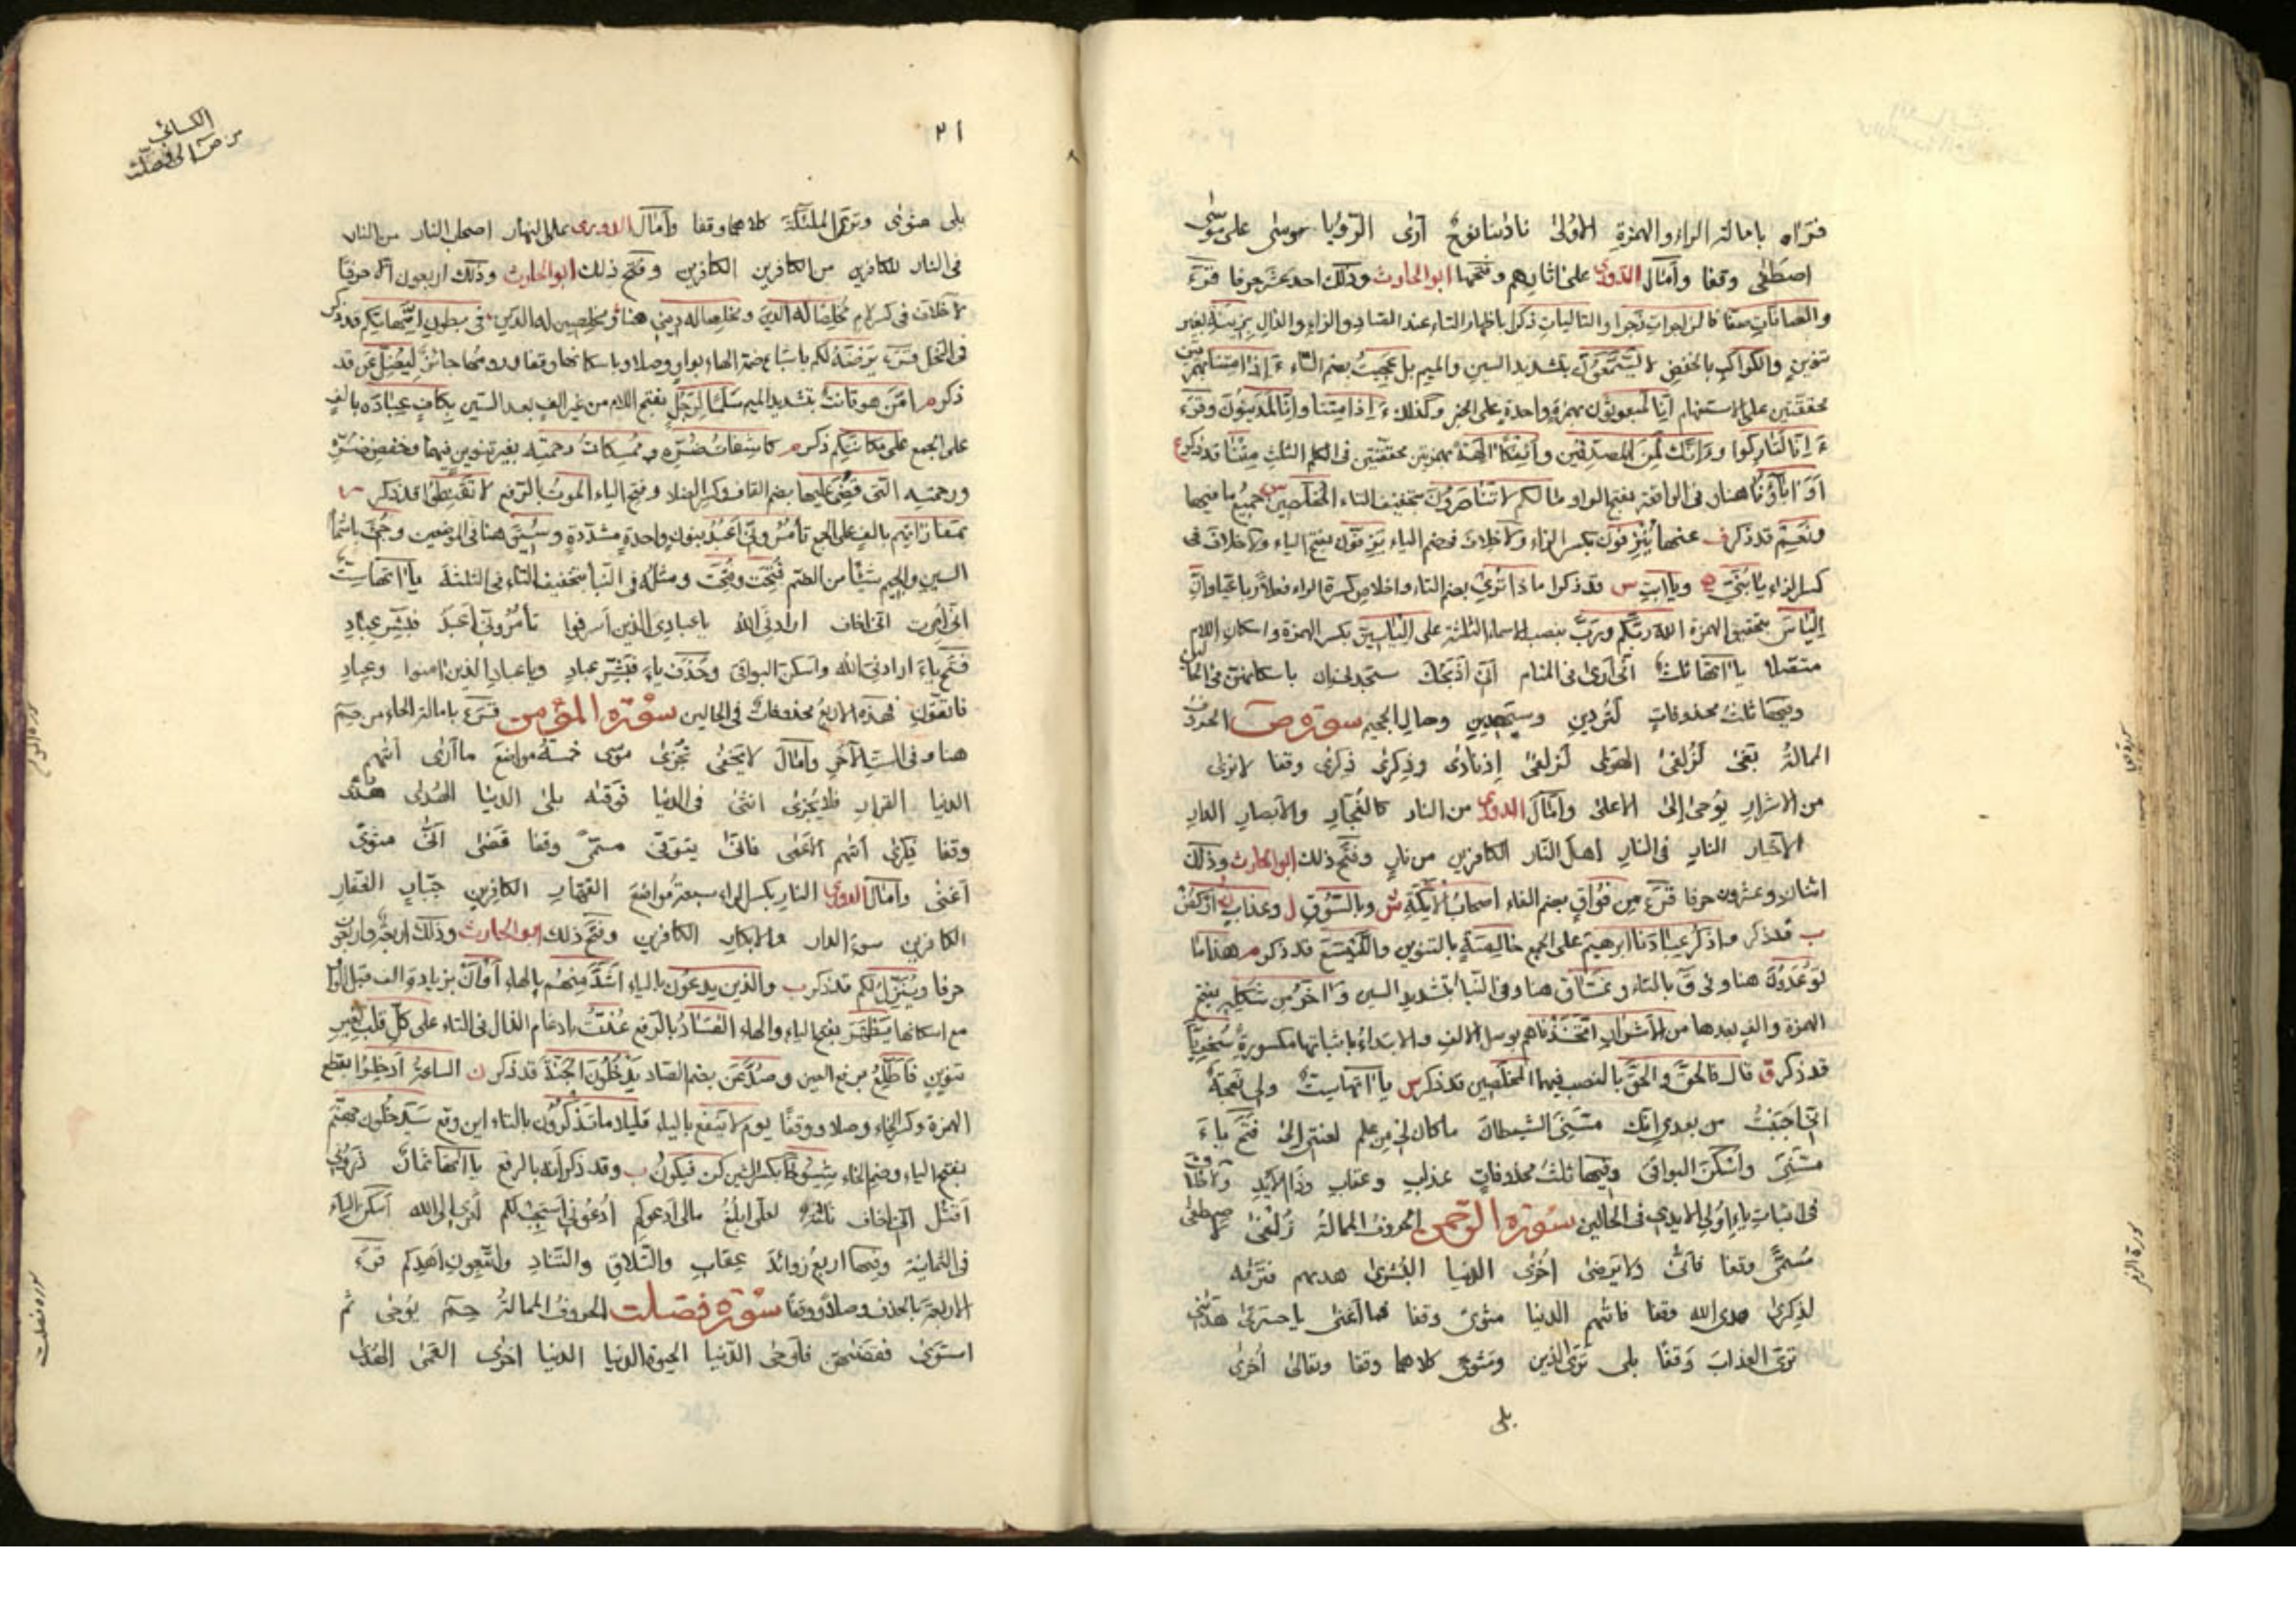 فرآه بامالة الراء والهمزة الأولى نادانا نوح أرى الرؤيا موسى على موسى
اصطفى وقفا وأمال الدوري على اثارهم وفتحها ابو الحارث وذلك احد عشر حرفا قرء
والصافات صفا فالزاجرات زجرا والتاليات ذكرا باظهار التاء عند الصاد والزاء والذال بزينة بغير
تنوين والكواكب بالخفض لا يسّمّعون بتشديد السين والميم بل عجبت بضم التاء ءَ إذا متنا بهمزتين
محققتين على الاستفهام انا لمبعوثون بهمزة واحدة على الخبر وكذلك ءَ إذا متنا وانا لمدينون وقرء
ءَ انا لتاركوا وءَ انك لمن المصدقين وأئفكا الهة بهمزتين محققتين في الكلم الثلث متنا قد ذكر ع
أوَ اباؤنا هنا وفي الواقعة بفتح الواو ما لكم لا تناصرون بتخفيف التاء المخلصين س جميع ما فيها
ونعم قد ذكر ف عنها ينزفون بكسر الزاء ولا خلاف في ضم الياء يزفون بفتح الياء ولا خلاف في
كسر الزاء يا بنيّ ه ويا ابت س قد ذكروا ماذا تري بضم التاء واخلاص كسرة الراء
الياس بتحقيق الهمزة الله ربكم ورب بنصب الاسماء الثلثة على الياسين بكسر الهمزة واسكان اللام
متصلا ياءاتها ثلث اني أرى في المنام اني أذبحك ستجدني ان باسكانهن في الحالين
وفيها ثلث محذوفات لتردين وسيهدين وصال الجحيم سورة ص الحروف
الممالة بغى لزلفى الهوى لزلفى إذ نادى وذكرى ذكرى وقفا لا نرى
من الاشرار يوحى إلى الاعلى وأمال الدوري من النار كالفجار والابصار الدار
الاخيار النار في النار أهل النار الكافرين من نار وفتح ذلك ابو الحارث وذلك
اثنان وعشرون حرفا قرء من فُواق بضم الفاء اصحاب الأيكة ش وبالسوق ل وعذاب اركض
ب قد ذكر واذكر عبادنا ابرهيم على الجمع خالصة بالتنوين والليسع قد ذكر م هذا ما
توعدون هنا وفي ق بالتاء وغساق هنا وفي النبا بتشديد السين واخر من شكله بفتح
الهمزة والف بعدها من الأشرار اتخذناهم بوصل الالف والابتداء باثباتها مكسورة سخريا
قد ذكر ق قال فالحقَ والحقَ بالنصب فيهما المخلصين قد ذكر س ياءاتها ست ولي نعجة
اني احببت من بعدي انك مسني الشيطان ما كان لي من علم لعنتي إلى فتح ياء
مسني وأسكن البواقي وفيها ثلث محذوفات عذاب وعقاب وذا الأيد ولا خلاف
في اثبات ياء أولي الايدي في الحالين سورة الزمر الحروف الممالة زلفى لاصطفى
مسمى وقفا فأنّى ولا يرضى أخرى الدنيا البشرى هديهم فتراه
لذكرى هدى الله وقفا فاتٰهم الدنيا مثوى وقفا فما أغنى يا حسرتى هداني
ترى العذاب وقفا بلى ترى الذين ومثوى كلاهما وقفا وتعالى أخرى
بلى
الكسائي
من ص الى فصلت
٢١
بلى مثوى وترى الملئكة كلاهما وقفا وأمال الدوري على النهار اصحاب النار من النار
في النار للكافرين من الكافرين الكافرين وفتح ذلك ابو الحارث وذلك اربعون حرفا
لا خلاف في كسر لام مخلصا له الدين ومخلصا له ديني هنا ومخلصين له الدين في بطون امهاتكم قد ذكر
في النحل قرء يرضه لكم باشباع ضمة الهاء بواو وصلا وباسكانها وقفا ورومها جائز ليضل عن قد
ذكر م امّن هو قانت بتشديد الميم سلما لرجل بفتح اللام من غير الف بعد السين بكاف عباده بالف
على الجمع على مكانتكم ذكر م كاشفات ضره وممسكات رحمته بغير تنوين فيهما وخفض ضره
ورحمته التي قضي عليها بضم القاف وكسر الضاد وفتح الياء الموت بالرفع لا تقنطوا قد ذكر
بمفازاتهم بالف على الجمع تأمروني أعبد بنون واحدة مشددة وسيق هنا في الموضعين وجيء باشمام
السين والجيم شيئا من الضم فتحت وفتحت ومثله في النبا بتخفيف التاء في الثلثة ياءاتها ست
اني أمرت اني اخاف ارادني الله يا عبادي الذين أسرفوا تأمروني أعبد فبشر عباد
فتح ياء ارادني الله واسكن البواقي وحذف ياء فبشر عباد ويا عباد الذين امنوا وعباد
فاتقون فهذه الاربع محذوفات في الحالين سورة المؤمن قرء بامالة الحاء من حم
هنا وفي الستة الأخر وأمال لا يخفى تجزى موسى خمسة مواضع ما أرى أتٰهم
الدنيا القرار فلا يجزى انثى في الدنيا فوقٰه بلى الدنيا الهدى هدى
وقفا ذكرى أتٰهم الاعمى فانّى يتوفى مسمى وقفا قضى انّى مثوى
أغنى وأمال الدوري النار بكسر الراء سبعة مواضع القهار الكافرين جبار الغفار
الكافرين سوء الدار والابكار الكافرين وفتح ذلك ابو الحارث وذلك اربعة واربعون
حرفا وينزل لكم قد ذكر ب والذين يدعون بالياء أشد منهم بالهاء أو أن بزيادة الف قبل الواو
مع اسكانها يَظهر بفتح الياء والهاء الفساد بالرفع عذت بادغام الذال في التاء على كل قلب بغير
تنوين فأطلع برفع العين وصُد عن بضم الصاد يدخلون الجنة قد ذكر ن الساعة أدخلوا بقطع
الهمزة وكسر الخاء وصلا ووقفا يوم لا ينفع بالياء قليلا ما تتذكرون بالتاء اين وقع سيدخلون جهنم
بفتح الياء وضم الخاء شيوخا بكسر الشين كن فيكون ب وقد ذكر انه بالرفع ياءاتها ثمان ذروني
أقتل اني اخاف ثلثة لعلي ابلغ مالي أدعوكم أدعوني أستجب لكم أمري إلى الله أسكن الياء
في الثمانية وفيها اربع زوائد عقاب والتلاق والتناد واتبعون اهدكم قرء
الاربعة بالحذف وصلا ووقفا سورة فصلت الحروف الممالة حم يوحى ثم
استوى فقضٰهن فأوحى الدنيا الحيوة الدنيا الدنيا اخرى العمى الهدى
سورة المؤمن
سورة فصلت
سورة ص
سورة الزمر